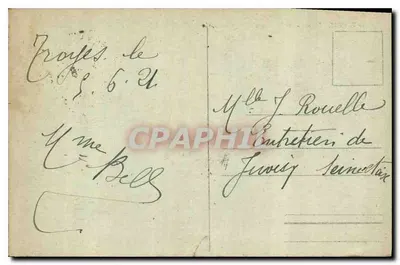 Troyes le
5. 6. 21
Mme Bell
Mlle J Rouelle
Entretien de
Juvisy Seine et Oise
CPARAMA